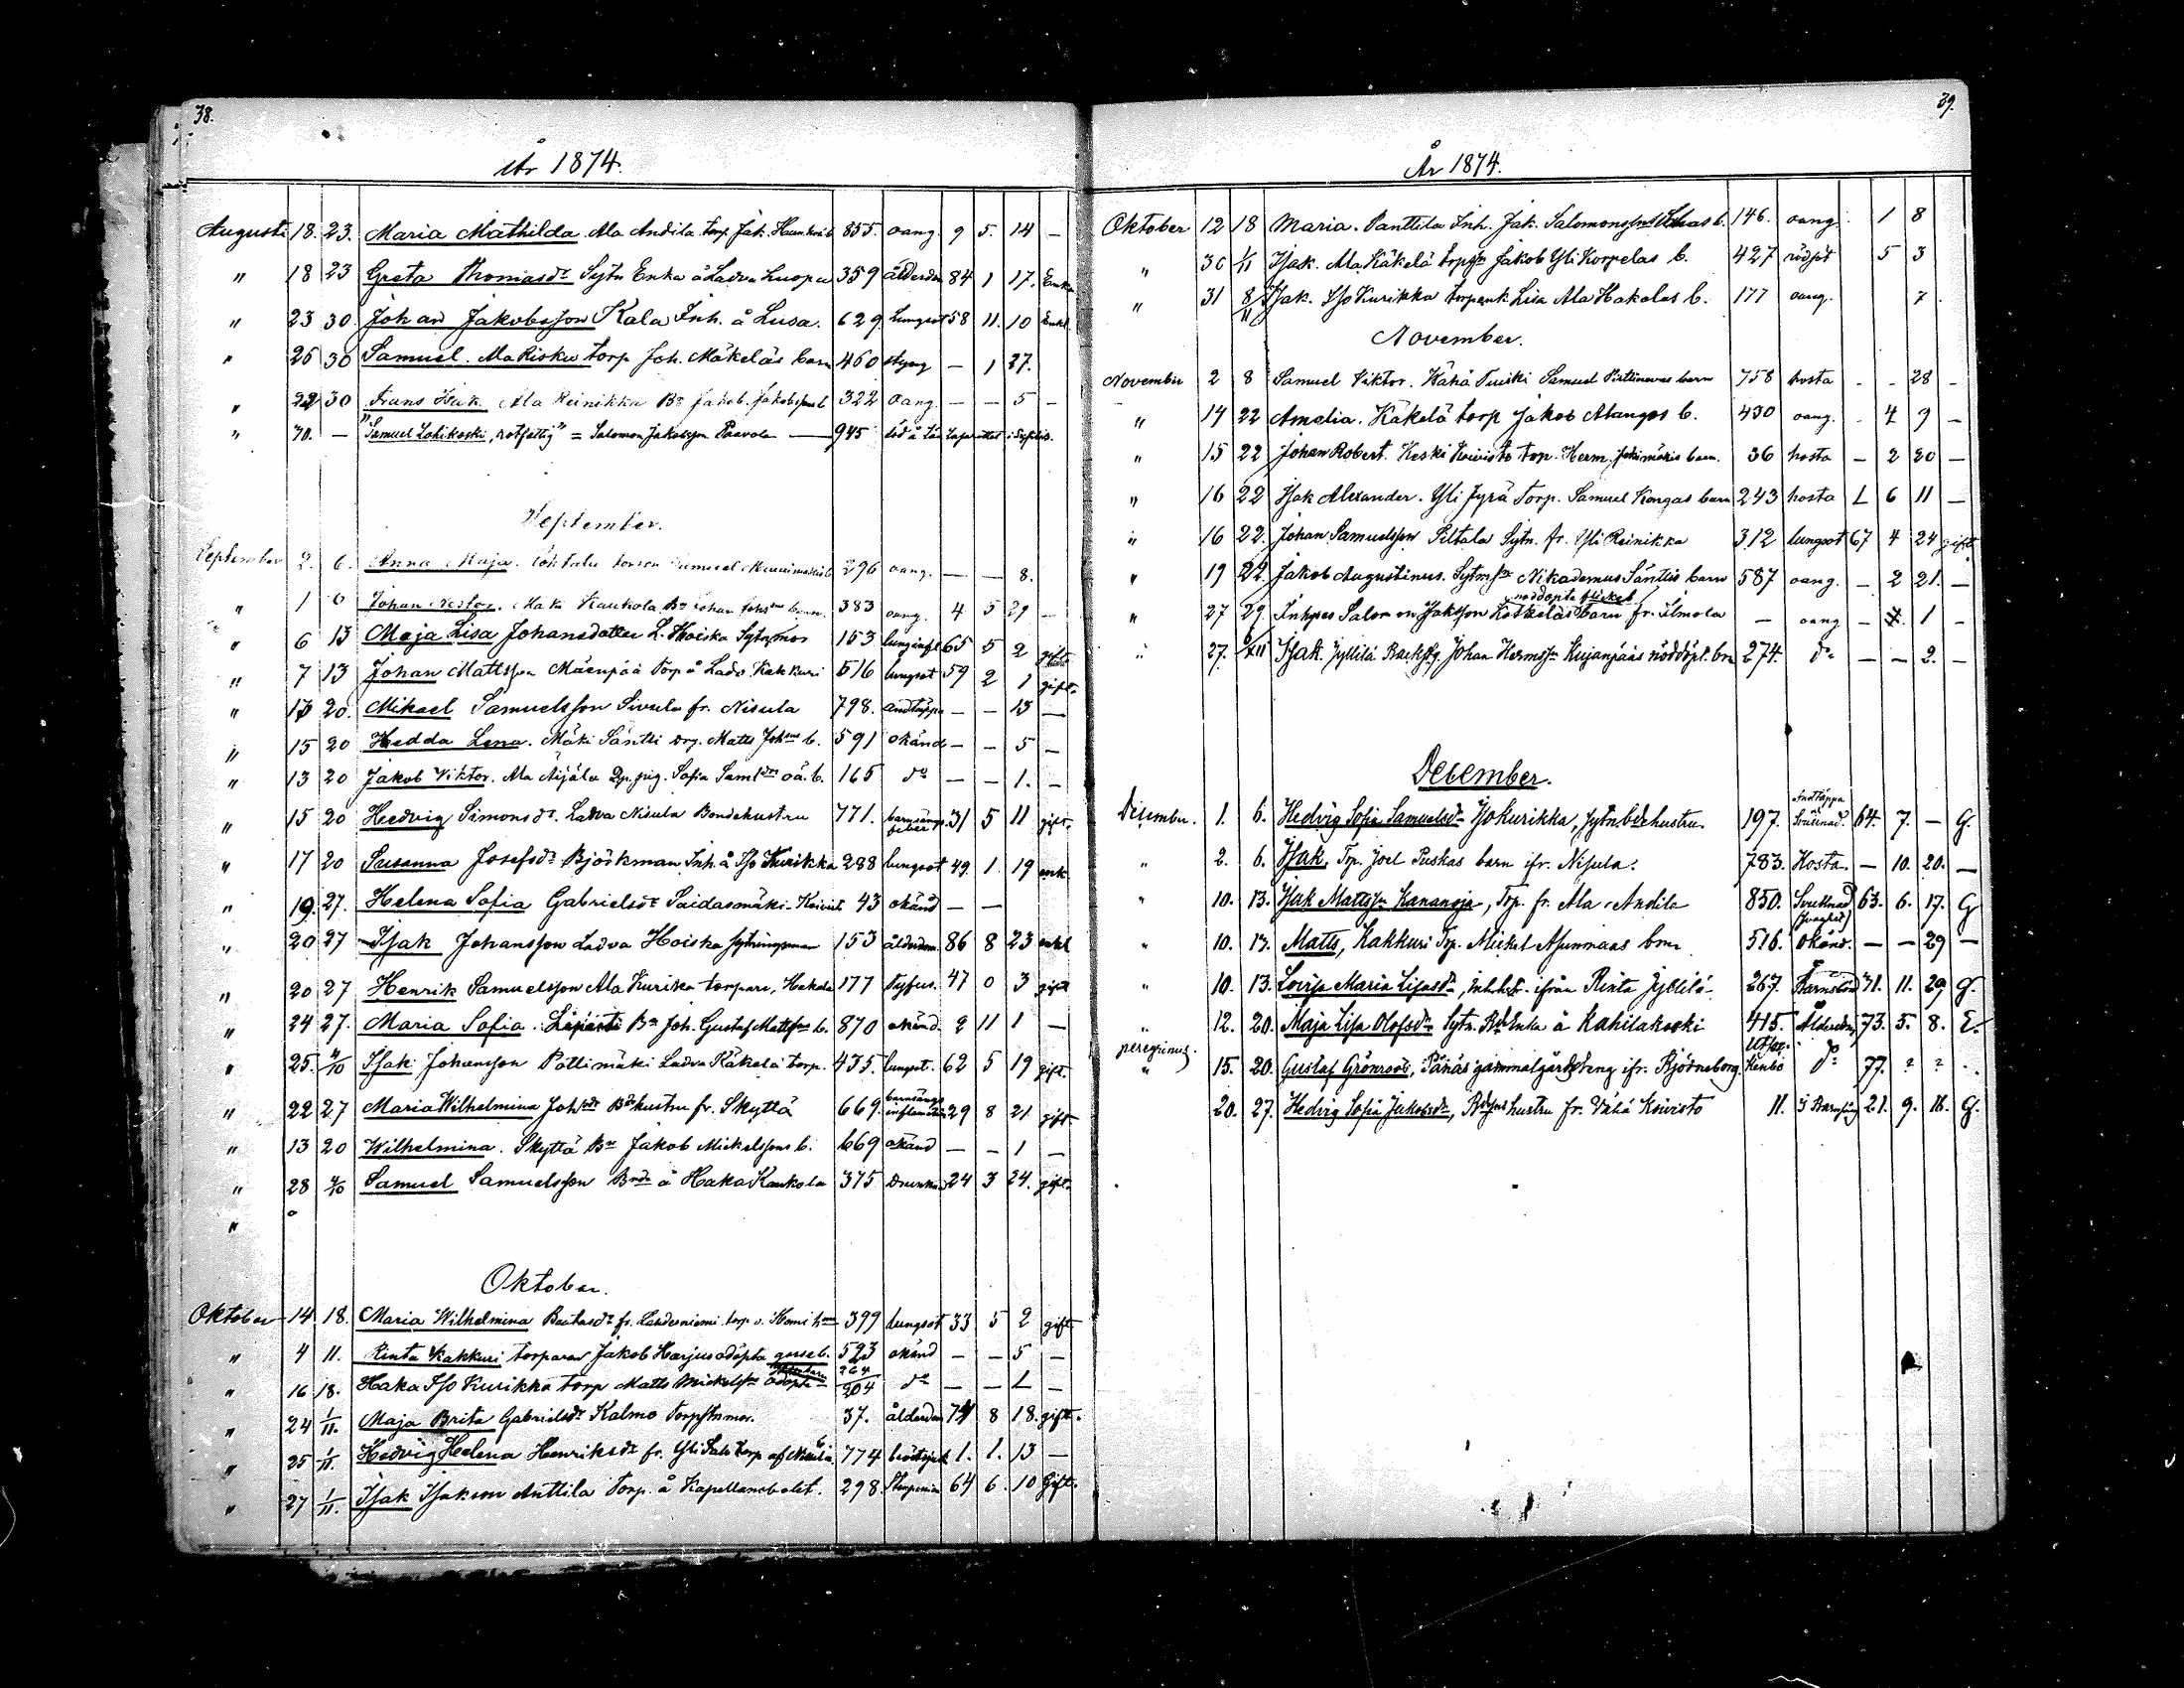 38.
År 1874.
Augusti 18. 23. Maria Mathilda. Ala Andila torp. Jak. 855. oang. 9 5. 14 —
" 18 23 Greta Thomasdr Sytn Enka å Ladva Luopa 359 ålderdom 84 1 17. Enka
" 23 30. Johan Jakobsson Kala Inh. å Lusa. 629 Lungsot 58 11. 10 Enkl
" 26 30 Samuel. Ala Risku torp Joh. Mäkeläs barn 460 styng — 1 27.
" 22 30 Frans Isak Ala Reinikka Be Jakob Jakobssons b 322 oang. — — 5 —
" 30. — "Samuel Lohikoski, rotfattig" = Salomon Jakobsson Paavola — 945 död å Län Lazarettet i Syfilis.
September.
September 2. 6. Anna Maja. torpen Samuel b 296 oang. — — 8.
" 1 6 Johan Nestor. Maki Kaukola Be Johan Johssons barn. 383 oang. 4 5 29 —
" 6 13 Maja Lisa Johansdotter L. Hoiska Sytn.mor 153 lunginfl 65 5 2 gift
" 7 13 Johan Mattsson Mäenpää Torp å Ladv. Kakkuri 516 lungsot 59 2 1 gift.
" 13 20. Mikael Samuelsson Sivula fr. Nisula 798. andtäppa — — 13 —
" 15 20 Hedda Lena. Mäki Säntti Drg. Matts Johssons b. 591 okänd — — 5 —
" 13 20 Jakob Viktor. Ala Äijälä pig. Sofia Samldrs oä. b. 165 do — — 1. —
" 15 20 Hedvig Simonsdr. Ladva Nisula Bondehustru 771. barnsängs feber 31 5 11 gift.
" 17 20 Susanna Josefsdr Björkman Inh. å Iso Kurikka 288 lungsot 49. 1. 19 enk
" 19. 27. Helena Sofia Gabrielsdr Saidasmäki-Koivist 43 okänd — —
" 20 27 Isak Johansson Ladva Hoiska Sytningsman 153 ålderdom. 86 8 23 enkl
" 20 27 Henrik Samuelsson Ala Kurikka torpare, Hakala 177 Tyfus. 47 0 3 gift
" 24 27. Maria Sofia. Be Joh. Gustaf Mattssons b. 870 okänd. 2 11 1 —
" 25. 4/10 Isak Johansson Pöllimäki Ladva Käkelä torp. 435. lungsot. 62 5 19 gift.
" 22 27 Maria Wilhelmina Johsdr Bdehustru fr. Skyttä 669. barnsängs inflamation 29 8 21 gift
" 13 20 Wilhelmina. Skyttä Be Jakob Mickelssons b. 669 okänd — — 1 —
" 28 4/10 Samuel Samuelsson Bnde å Haka Kaukola 375 Drunknad 24 3 24. gift.
"
Oktober.
Oktober 14 18. Maria Wilhelmina fr. torp. 399 lungsot 33 5 2 gift
" 4 11. Rinta Kakkuri torparen Jakob Harjus odöpta gosseb. 523 okänd — — 5 —
" 16 18. Haka Iso Kurikka torp Matts Mickelss odöpte 264/204 do — — 1 —
" 24 1/11. Maja Brita Gabrielsdr Kalmo Torpstn mor. 37. ålderdom 74 8 18. gift.
" 25 1/11. Hedvig Helena Henriksdr fr. Yli torp af Nisula 774 bröstsjuk 1. 1. 13 —
" 27 1/11. Isak Isakson Anttila Torp. å Kapellansbolet. 298. 64 6. 10 Gift.
39.
År 1874.
Oktober 12 18 Maria. Panttila Inh. Jak. Salomonssons b. 146. oang. 1 8
" 30 1/11 Isak. Ala Käkelä torpsn Jakob Yli Korpelas b. 427 rödsot 5 3
" 31 8/11 Isak. Iso Kurikka torpenk Lisa Ala Hakalas b. 177 oang. 7.
November.
November 2 8 Samuel Viktor. Kähä Tuiski Samuel barn 758 hosta - - 28 -
" 14 22 Amalia. Käkelä torp Jakob Alangos b. 430 oang. - 4 9 —
" 15 22 Johan Robert. Keski Koivisto torp. Herm. barn. 36 hosta — 2 20 —
" 16 22 Isak Alexander. Yli Jyrä Torp. Samuel Kangas barn 243 hosta 1 6 11 —
" 16 22. Johan Samuelsson Piltala Sytn. fr. Yli Reinikka 312 lungsot 67 4 24 gift
" 19 22. Jakob Augustinus. Sytmsn Nikademus Sänttis barn 587 oang. — 2 21. —
nöddöpta flicka
" 27 29. Inhyses Salomon Jakssson Koskelas barn fr. Ilmola — oang — 1 —
" 27. XII Isak. Jyllilä Backstg. Johan Hermssn Kujanpääs nöddöpt. bn 274. do — — 2. —
December.
December. 1. 6. Hedvig Sofia Samuelsdr Iso Kurikka, Sytn. bdehustru. 197. Andtäppa Svullnad. 64. 7. — G.
" 2. 6. Isak, Trp. Joel Puskas barn ifr. Nisula. 783. Hosta. — 10. 20. —
" 10. 13. Isak Mattssn Kananoja, Trp. fr. Ala-Andila 850. Svullnad 63. 6. 17. G
" 10. 13. Matts, Kakkuri Trp. Mickel Asunmaas brn 516. okänd. — — 29 —
" 10. 13. Lovisa Maria Lisasdr, ifrån Rinta Jyllilä 267. Barnsbörd 31. 11. 29 G.
" 12. 20. Maja Lisa Olofsdr Sytn. Bd Enka å Kahilakoski 415. Ålderdom 73. 5. 8. E.
peregrinus.
" 15. 20. Gustaf Grönroos, Pänäs gammalgårds dreng ifr. Björneborg. do 77. ? ? . .
20. 27. Hedvig Sofia Jakobsdr, Bdes hustru fr. Vähä Koivisto 11. I Barnsäng 21. 9. 16. G.